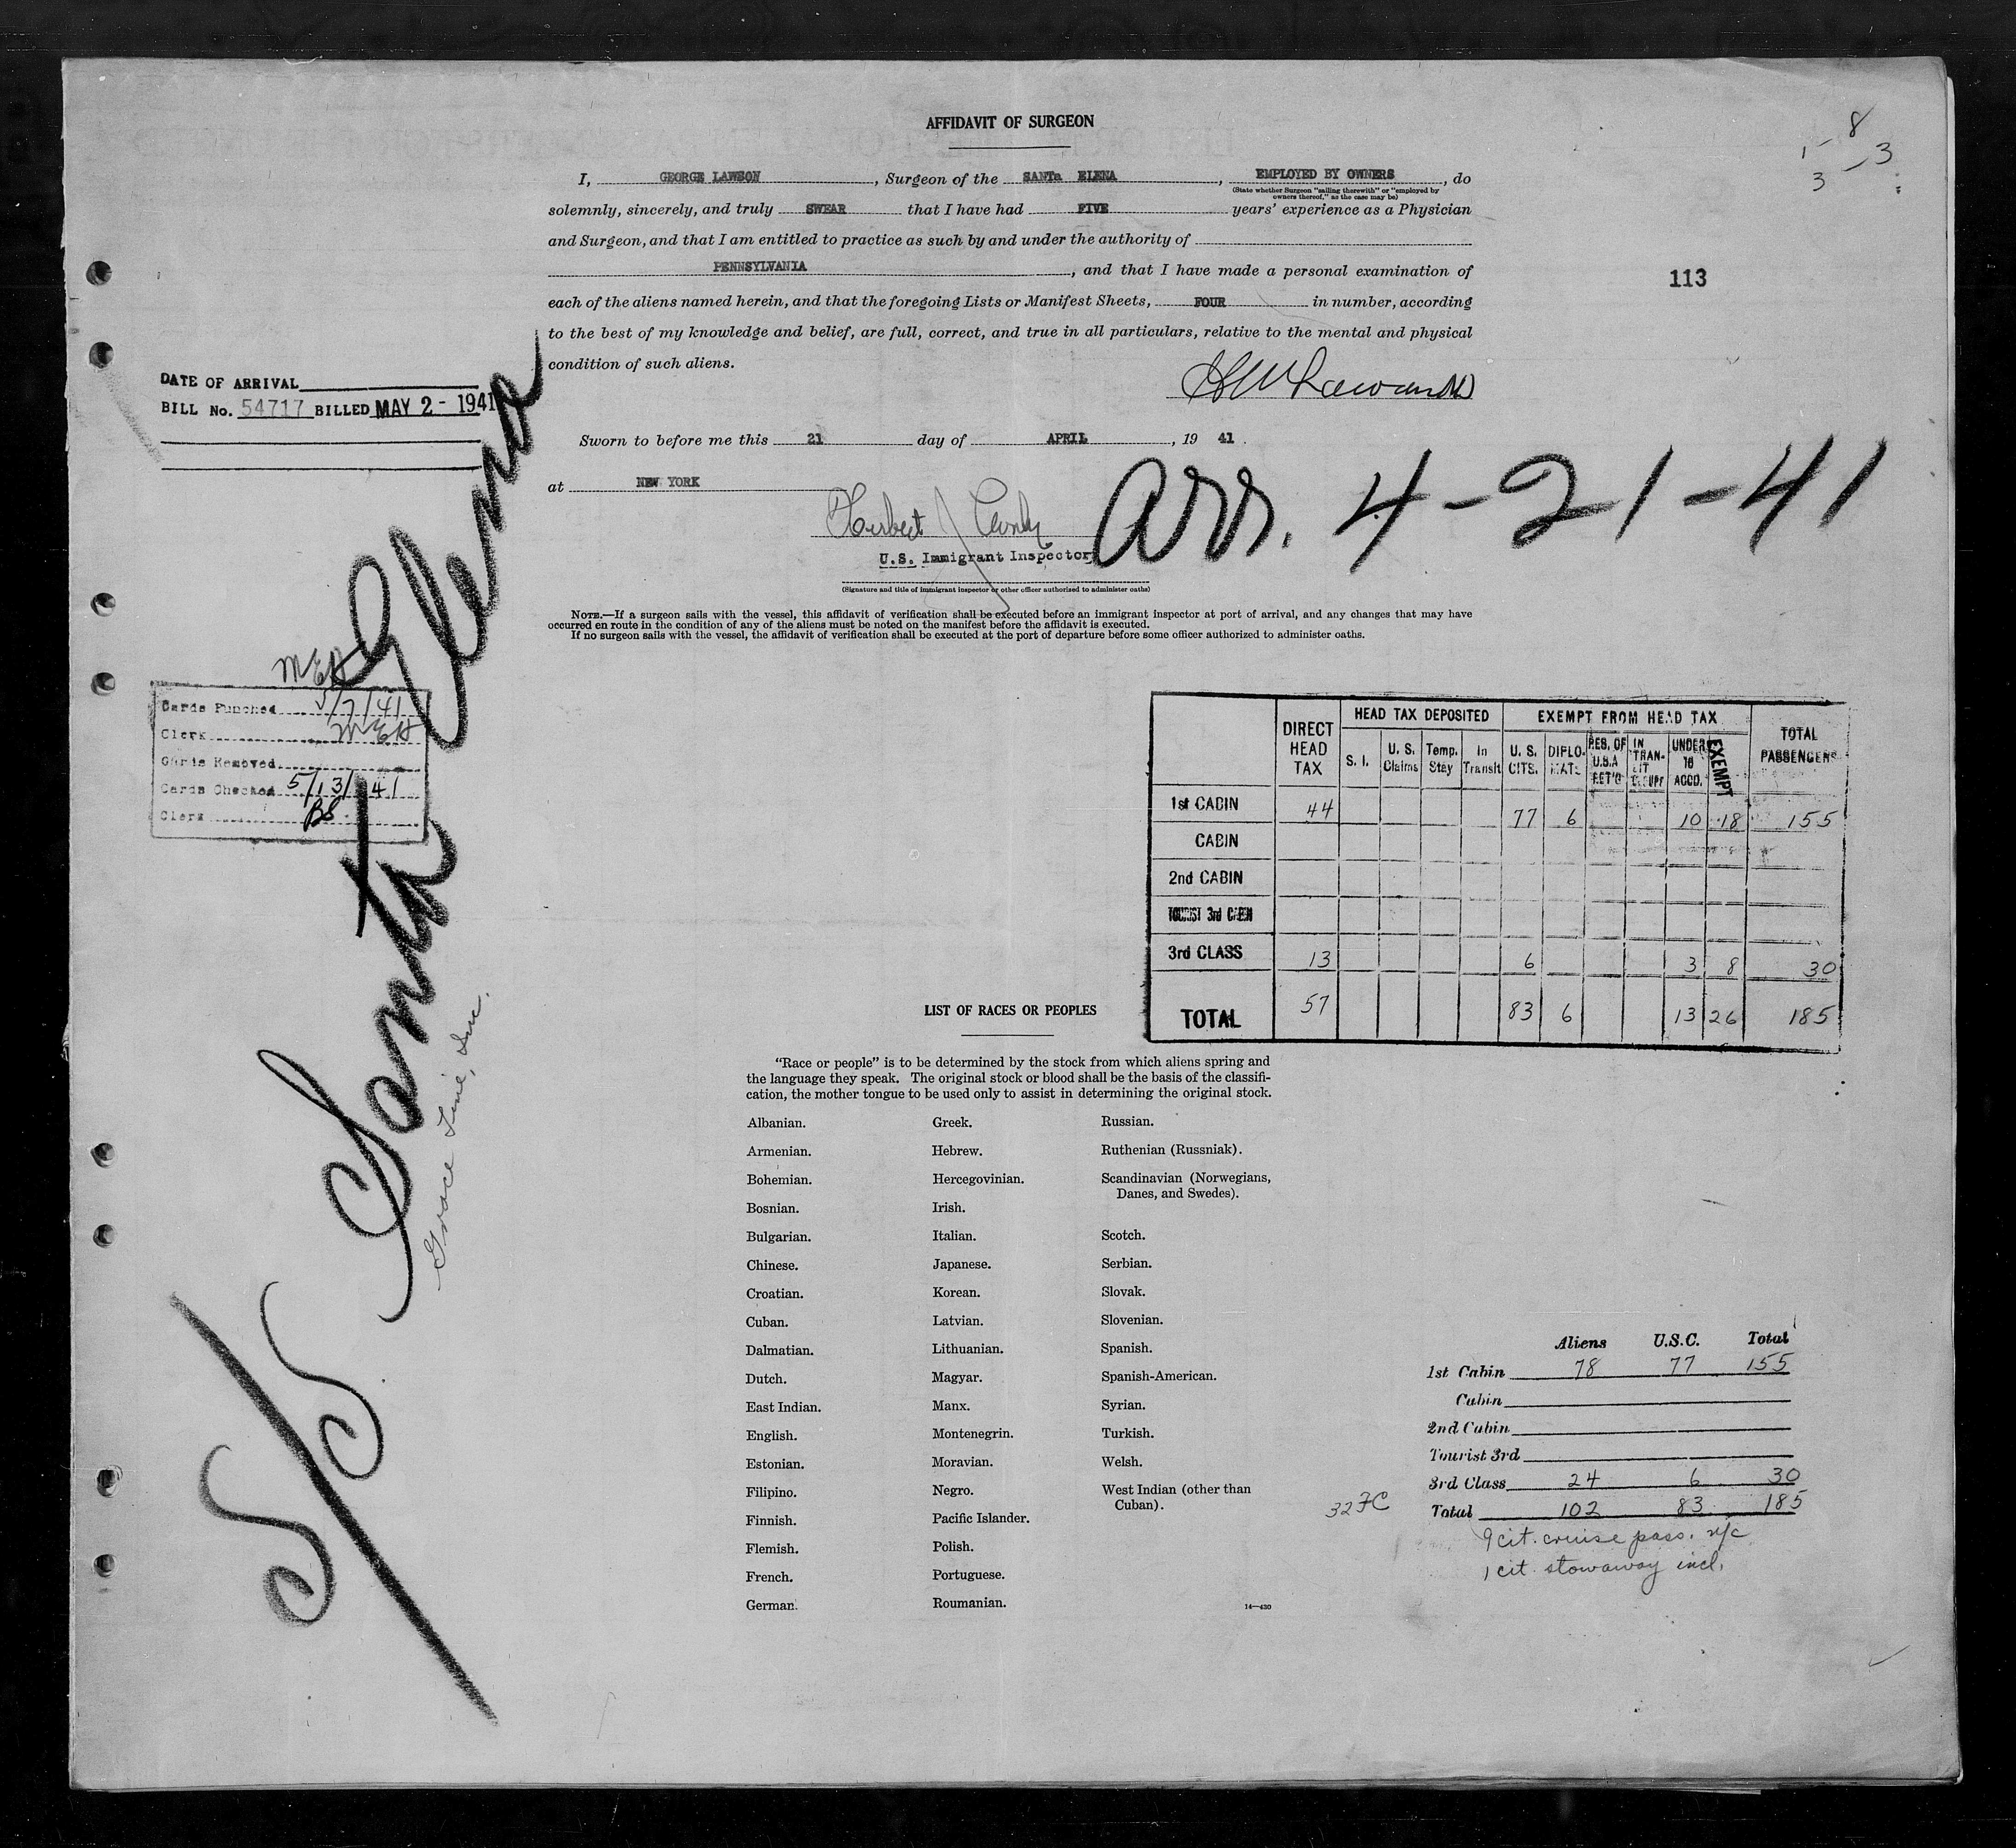 AFFIDAVIT OF SURGEON
I, GEORGE LAWSON, Surgeon of the SANTa ELENA, EMPLOYED BY OWNERS, do
(State whether Surgeon "sailing therewith" or "employed by
owners thereof," as the case may be)
solemnly, sincerely, and truly SWEAR that I have had FIVE years' experience as a Physician
and Surgeon, and that I am entitled to practice as such by and under the authority of
PENNSYLVANIA, and that I have made a personal examination of
each of the aliens named herein, and that the foregoing Lists or Manifest Sheets, FOUR in number, according
to the best of my knowledge and belief, are full, correct, and true in all particulars, relative to the mental and physical
condition of such aliens.
8
1 - 3
3
113
DATE OF ARRIVAL
BILL No. 54717 BILLED MAY 2 - 1941
Sworn to before me this 21 day of APRIL, 19 41.
at NEW YORK
Herbert J
U.S. Immigrant Inspector
(Signature and title of immigrant inspector or other officer authorized to administer oaths)
Arr. 4-21-41
NOTE.—If a surgeon sails with the vessel, this affidavit of verification shall be executed before an immigrant inspector at port of arrival, and any changes that may have
occurred en route in the condition of any of the aliens must be noted on the manifest before the affidavit is executed.
If no surgeon sails with the vessel, the affidavit of verification shall be executed at the port of departure before some officer authorized to administer oaths.
MEH
Cards Punched 5/7/41
Clerk MEH
Cards Removed
Cards Checked 5/13/41
Clerk BS
S/S Santa Elena
Grace Line, Inc.
DIRECT HEAD TAX HEAD TAX DEPOSITED EXEMPT FROM HEAD TAX TOTAL PASSENGERS
S. I. U. S. Claims Temp. Stay In Transit U. S. CITS. DIPLOMATS RES. OF U.S.A RET'G IN TRANSIT UNDER 16 ACCD. EXEMPT
1st CABIN 44 77 6 10 18 155
CABIN
2nd CABIN
TOURIST 3rd CABIN
3rd CLASS 13 6 3 8 30
TOTAL 57 83 6 13 26 185
LIST OF RACES OR PEOPLES
"Race or people" is to be determined by the stock from which aliens spring and
the language they speak. The original stock or blood shall be the basis of the classifi-
cation, the mother tongue to be used only to assist in determining the original stock.
Albanian.
Armenian.
Bohemian.
Bosnian.
Bulgarian.
Chinese.
Croatian.
Cuban.
Dalmatian.
Dutch.
East Indian.
English.
Estonian.
Filipino.
Finnish.
Flemish.
French.
German.
Greek.
Hebrew.
Hercegovinian.
Irish.
Italian.
Japanese.
Korean.
Latvian.
Lithuanian.
Magyar.
Manx.
Montenegrin.
Moravian.
Negro.
Pacific Islander.
Polish.
Portuguese.
Roumanian.
Russian.
Ruthenian (Russniak).
Scandinavian (Norwegians,
Danes, and Swedes).
Scotch.
Serbian.
Slovak.
Slovenian.
Spanish.
Spanish-American.
Syrian.
Turkish.
Welsh.
West Indian (other than
Cuban).
14—430
Aliens U.S.C. Total
1st Cabin 78 77 155
Cabin
2nd Cabin
Tourist 3rd
3rd Class 24 6 30
32 FC
Total 102 83 185
9 cit. cruise pass. n/c
1 cit. stowaway incl.